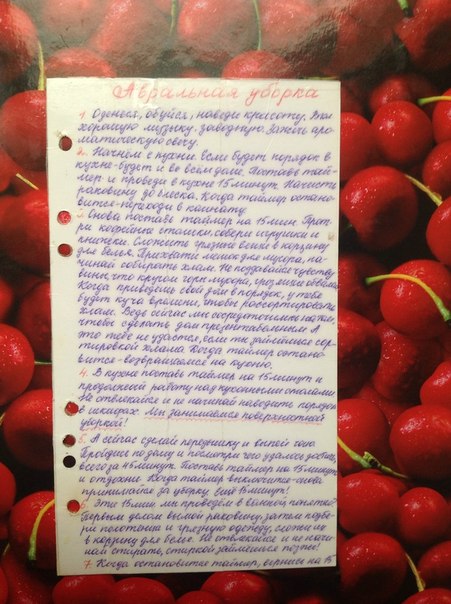 Авральная уборка
1. Оденься, обуйся, наведи красоту. Вкл
хорошую музыку. заводную. Зажечь аро-
матическую свечу.
2. Начнём с кухни. Если будет порядок в
кухне-будет и во всём доме. Поставь тай-
мер и проведи в кухне 15 минут. Начисти
раковину до блеска. Когда таймер остано-
вится-переходи в комнату.
3. Снова поставь таймер на 15 мин. Прот-
ри кофейный столик, собери игрушки и
книжки. Сложить грязные вещи в корзину
для белья. Прихвати мешок для мусора, на-
чинай собирать хлам. Не поддавайся чувству
вины, что кругом горы мусора, грязи и не
Когда приведёшь свой дом в порядок, у тебя
будет куча времени, чтобы рассортировать
хлам. Ведь сейчас мы сосредоточились на том,
чтобы сделать дом презентабельным. А
это тебе не удастся, если ты займёшься сор-
тировкой хлама. Когда таймер остано-
вится-возвращаемся на кухню.
4. В кухне поставь таймер на 15 минут и
продолжай работу над кухонными столами
Не отвлекайся и не начинай наводить порядок
в шкафах. Мы занимаемся поверхностной
уборкой!
5. А сейчас сделай передышку и выпей чаю.
Пройдись по дому и посмотри чего удалось добиться
всего за 45 минут. Поставь таймер на 15 минут
и отдохни. Когда таймер выключится-снова
принимайся за уборку. Ещё 15 минут!
6. Эти 15 мин мы проведём в ванной комнате.
Первым делом вымой раковину, затем подбе-
ри полотенца и грязную одежду, сложи их
в корзину для белья. Не отвлекайся и не начи-
най стирать, стиркой займёшься позже!
7. Когда остановится таймер, вернись на 15